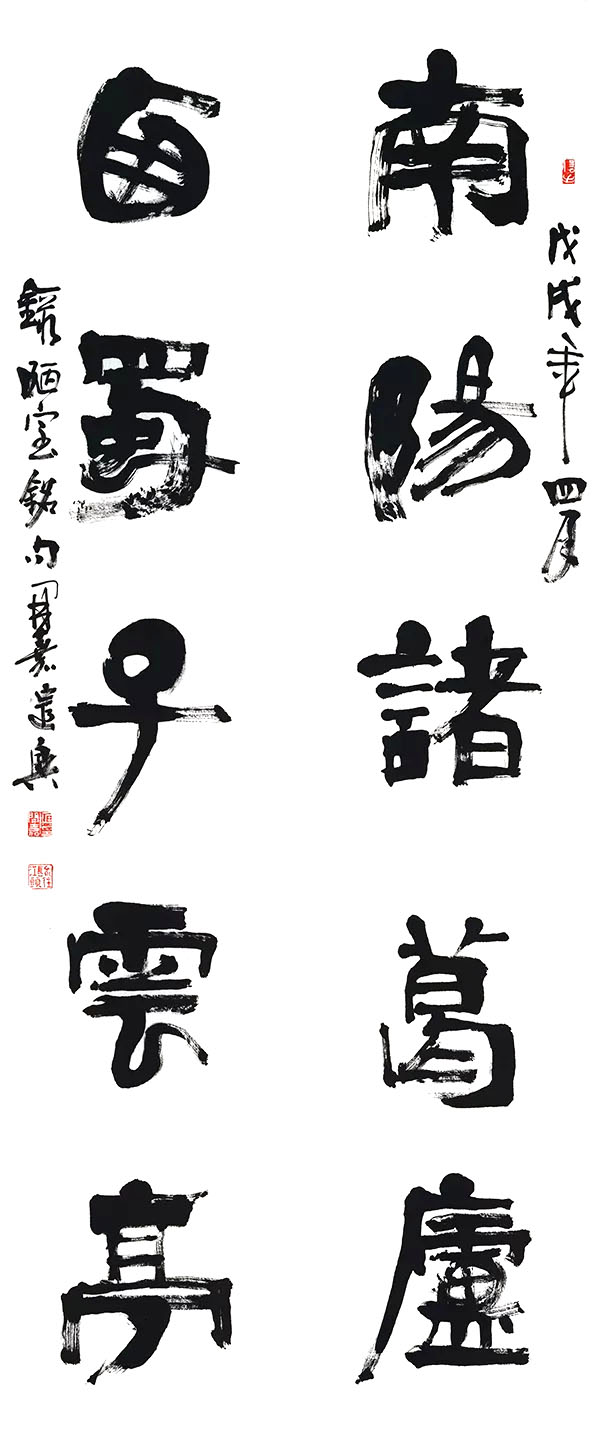 戊戌年四月
南陽諸葛廬
西蜀子雲亭
錄陋室銘句